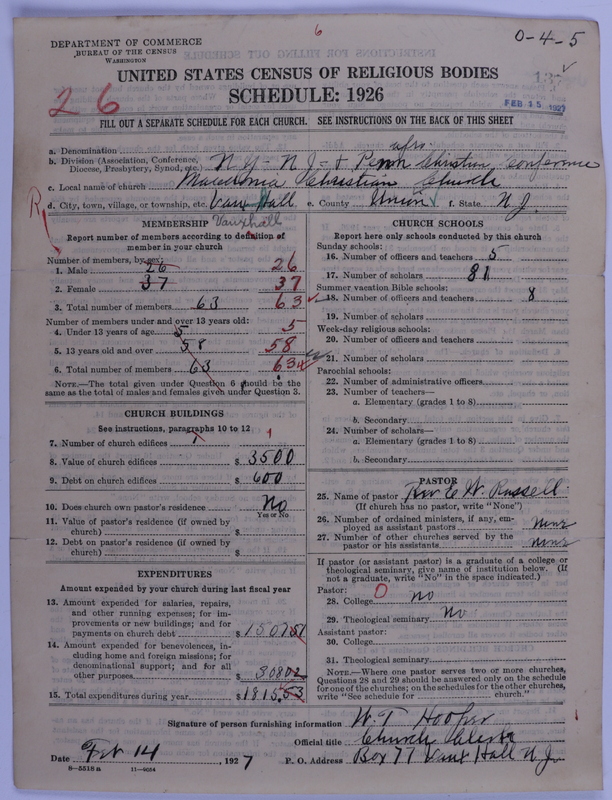 6
O-4-5
DEPARTMENT OF COMMERCE
BUREAU OF THE CENSUS
WASHINGTON
UNITED STATES CENSUS OF RELIGIOUS BODIES
SCHEDULE: 1926
26
137
FEB 15 1927
FILL OUT A SEPARATE SCHEDULE FOR EACH CHURCH. SEE INSTRUCTIONS ON THE BACK OF THIS SHEET
a. Denomination
afro
b. Division (Association, Conference, Diocese, Presbytery, Synod, etc.) N Y - N J - & Penn Christian Conference
c. Local name of church Macedonia Christian Church
d. City, town, village, or township, etc. Vaux Hall e. County Union f. State N J.
Vauxhall
MEMBERSHIP
Report number of members according to definition of
member in your church
Number of members, by sex:
1. Male 26 26
2. Female 37 37
3. Total number of members 63 63
Number of members under and over 13 years old:
4. Under 13 years of age 5 5
5. 13 years old and over 58 58
6. Total number of members 63 63
NOTE.—The total given under Question 6 should be the
same as the total of males and females given under Question 3.
CHURCH BUILDINGS
See instructions, paragraphs 10 to 12
7. Number of church edifices 1 1
8. Value of church edifices $ 3500
9. Debt on church edifices $ 600
10. Does church own pastor's residence No
Yes or No
11. Value of pastor's residence (if owned by
church) $
12. Debt on pastor's residence (if owned by
church) $
EXPENDITURES
Amount expended by your church during last fiscal year
13. Amount expended for salaries, repairs,
and other running expenses; for im-
provements or new buildings; and for
payments on church debt $ 1507 51
14. Amount expended for benevolences, in-
cluding home and foreign missions; for
denominational support; and for all
other purposes $ 308 02
15. Total expenditures during year $ 1815.53
CHURCH SCHOOLS
Report here only schools conducted by this church
Sunday schools:
16. Number of officers and teachers 5
17. Number of scholars 81
Summer vacation Bible schools:
18. Number of officers and teachers 8
19. Number of scholars
Week-day religious schools:
20. Number of officers and teachers
21. Number of scholars
Parochial schools:
22. Number of administrative officers
23. Number of teachers—
a. Elementary (grades 1 to 8)
b. Secondary
24. Number of scholars—
a. Elementary (grades 1 to 8)
b. Secondary
PASTOR
25. Name of pastor Rev E W. Russell
(If church has no pastor, write "None")
26. Number of ordained ministers, if any, em-
ployed as assistant pastors none
27. Number of other churches served by the
pastor or his assistants none
If pastor (or assistant pastor) is a graduate of a college or
theological seminary, give name of institution below. (If
not a graduate, write "No" in the space indicated.)
Pastor: 0
28. College no
29. Theological seminary No
Assistant pastor:
30. College
31. Theological seminary
NOTE.—Where one pastor serves two or more churches,
Questions 28 and 29 should be answered only on the schedule
for one of the churches; on the schedules for the other churches,
write "See schedule for church."
Signature of person furnishing information W. T Hooper
Official title Church Clerk
Date Feb 14, 1927 P. O. Address Box 77 Vaux Hall N.J.
8—5518 a 11—9034